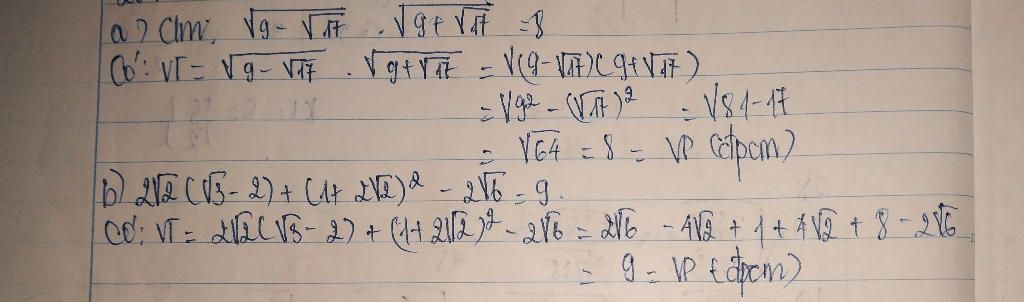 a) Clm: √9-√17 . √9+√17 = 8
Có: VT = √9-√17 . √9+√17 = √(9-√17)(9+√17)
= √9² - (√17)² = √81-17
= √64 = 8 = VP (đpcm)
b) 2√2 (√3 - 2) + (1+ 2√2)² - 2√6 = 9.
Có: VT = 2√2(√3 - 2) + (1+2√2)² - 2√6 = 2√6 - 4√2 + 1 + 4√2 + 8 - 2√6
= 9 = VP (đpcm)